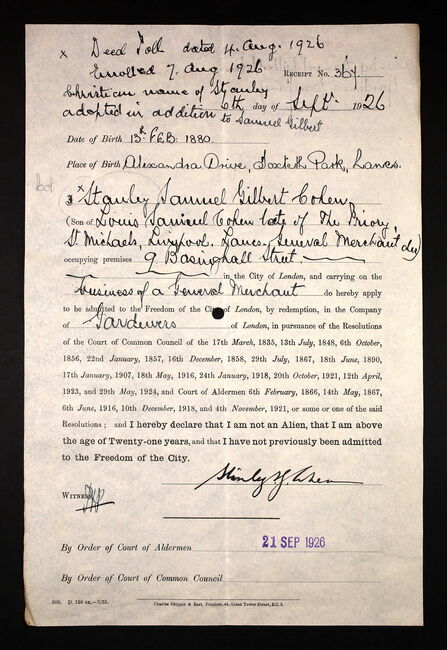 x Deed Poll dated 4. Aug. 1926
Enrolled 7. Aug 1926. RECEIPT NO. 364
Christian name of Stanley
adopted in addition 6th day of Septr 1926
to Samuel Gilbert
Date of Birth 13th FEB: 1880.
Place of Birth Alexandra Drive, Toxteth Park, Lancs.
x Stanley Samuel Gilbert Cohen
(Son of Louis Samuel Cohen late of The Priory
St Michaels, Liverpool, Lancs. General Merchant decd)
occupying premises 9 Basinghall Street.
in the City of London, and carrying on the
business of a General Merchant do hereby apply
to be admitted to the Freedom of the City of London, by redemption, in the Company
of Gardeners of London, in pursuance of the Resolutions
of the Court of Common Council of the 17th March, 1835, 13th July, 1848, 6th October,
1856, 22nd January, 1857, 16th December, 1858, 29th July, 1867, 18th June, 1890,
17th January, 1907, 18th May, 1916, 24th January, 1918, 20th October, 1921, 12th April,
1923, and 29th May, 1924, and Court of Aldermen 6th February, 1866, 14th May, 1867,
6th June, 1916, 10th December, 1918, and 4th November, 1921, or some or one of the said
Resolutions; and I hereby declare that I am not an Alien, that I am above
the age of Twenty-one years, and that I have not previously been admitted
to the Freedom of the City.
Stanley S. G. Cohen
WITNESS
By Order of Court of Aldermen 21 SEP 1926
By Order of Court of Common Council
500. D. 126 ex.—5/25. Charles Skipper & East, Printers, 49, Great Tower Street, E.C.3.